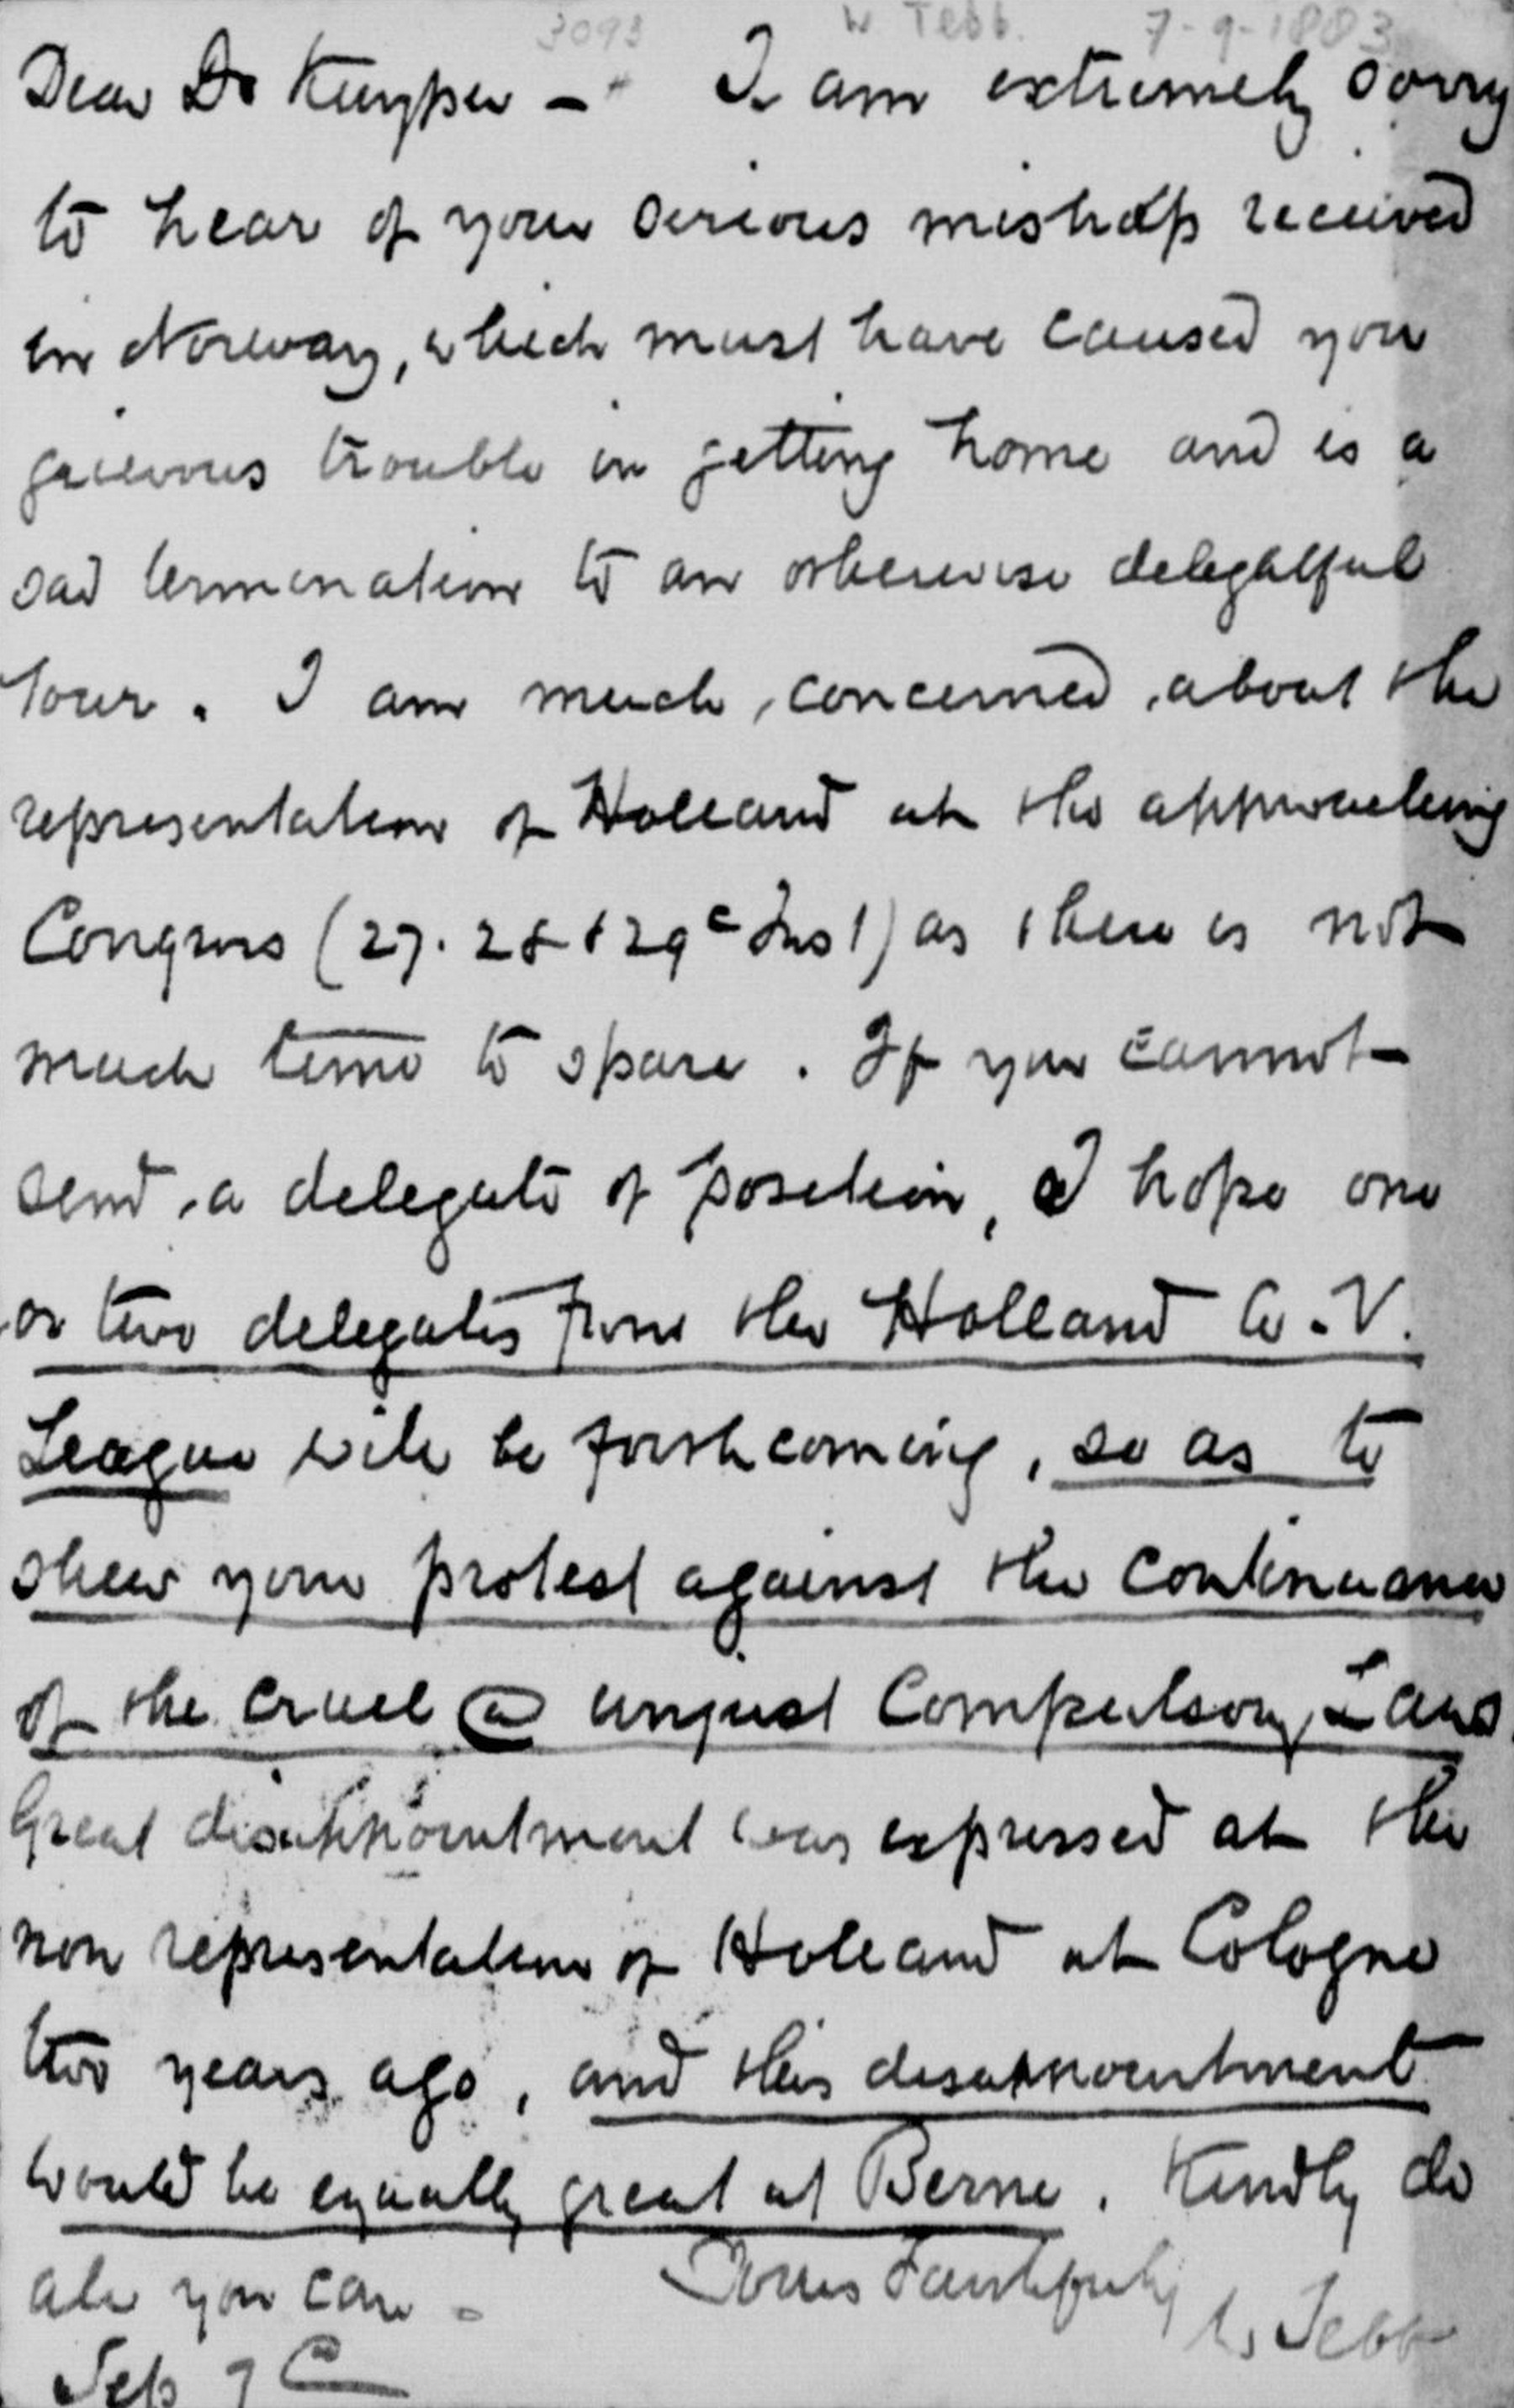 3093 W Tebb. 7-9-1883
Dear Dr Kuyper – I am extremely sorry
to hear of your serious mishap received
in Norway, which must have caused you
grievous trouble in getting home and is a
sad termination to an otherwise delightful
tour. I am much concerned about the
representation of Holland at the approaching
Congress (27. 28 & 29th Inst) as there is not
much time to spare. If you cannot
send a delegate of position, I hope one
or two delegates from the Holland A.-V.
League will be forthcoming, so as to
shew your protest against the continuance
of the cruel & unjust Compulsory Laws.
Great disappointment was expressed at the
non representation of Holland at Cologne
two years ago, and this disappointment
would be equally great at Berne. Kindly do
all you can –
Yours Faithfully
W Tebb
Sep 7